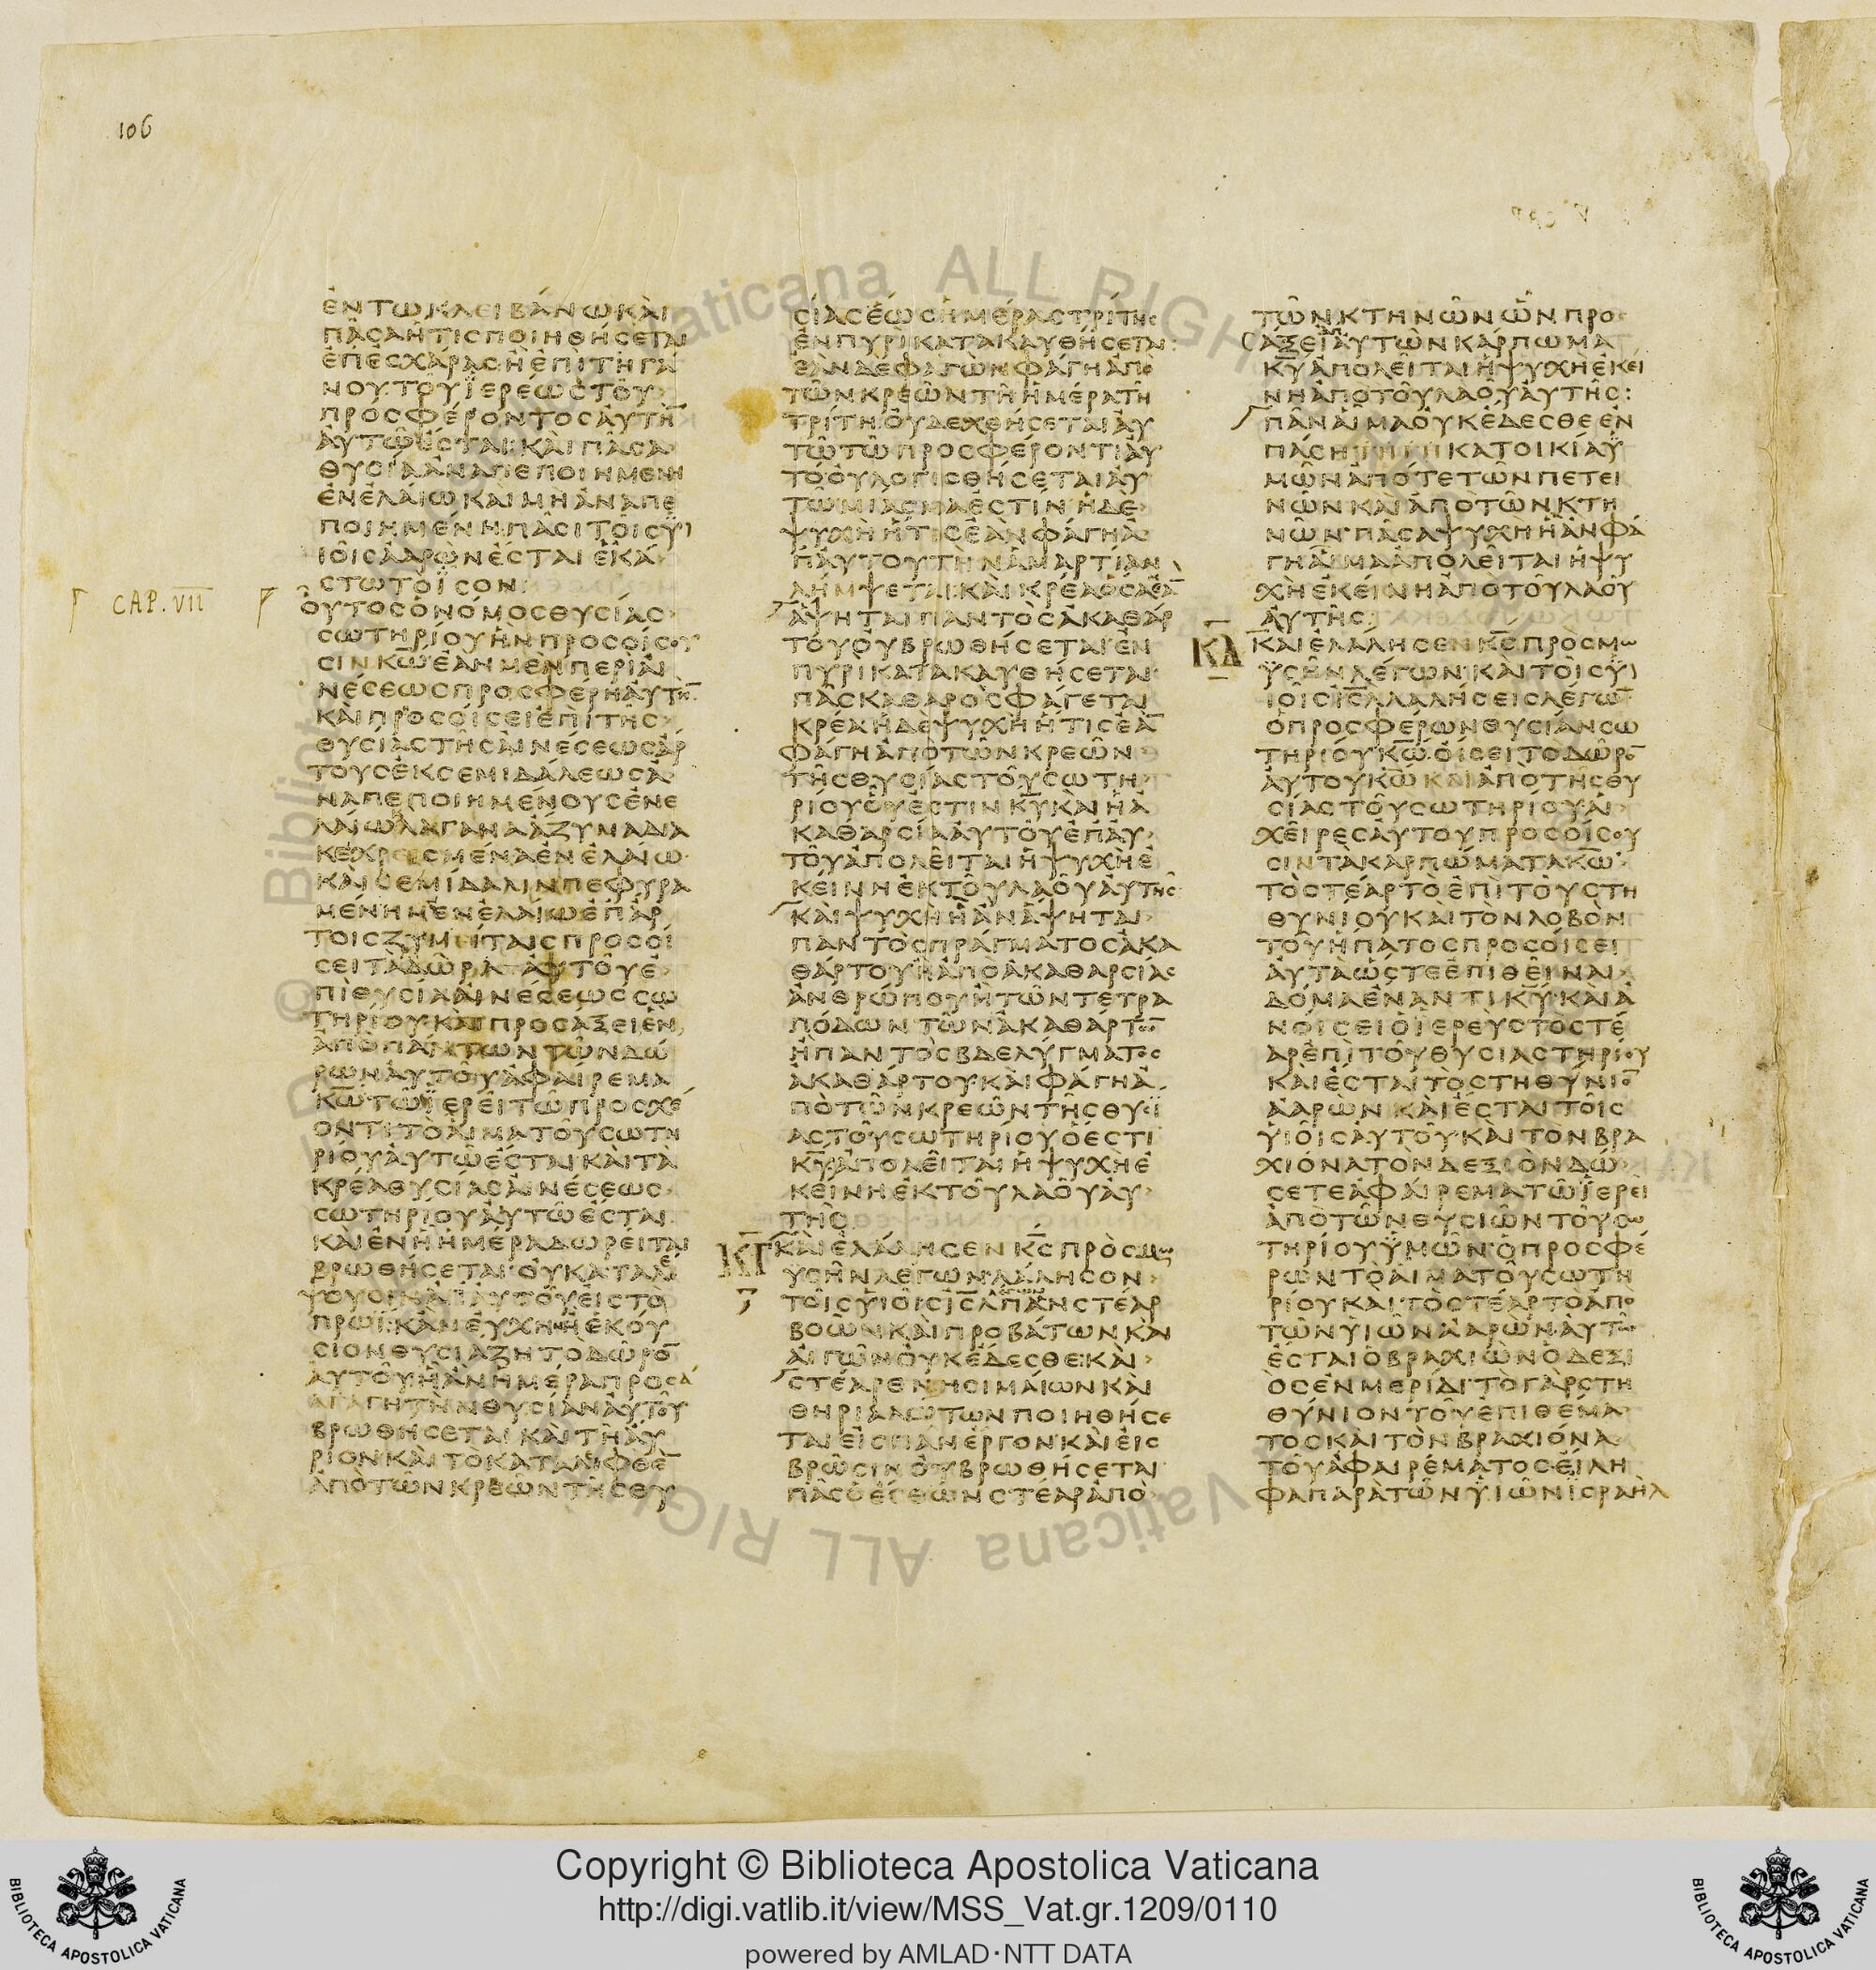 106
ἐν τῷ κλειβάνῳ καὶ
πᾶσα ἥτις ποιηθήσεται
ἐπ ἐσχάρας ἢ ἐπὶ τηγά
νου τοῦ ἱερέως τοῦ
προσφέροντος αὐτὴ̅
αὐτῷ ἔσται καὶ πᾶσα
θυσία ἀναπεποιημένη
ἐν ἐλαίῳ καὶ μὴ ἀναπε
ποιημένη πᾶσι τοῖς υἱ
οῖς ἀαρὼν ἔσται ἑκά
στῳ τὸ ἴσον
CAP. VII
οὗτος ὁ νόμος θυσίας
σωτηρίου ἣν προσοίσου
σιν κ̅ω̅ ἐὰν μὲν περὶ αἰ
νέσεως προσφέρῃ αὐτὴ̅
καὶ προσοίσει ἐπὶ τῆς
θυσίας τῆς αἰνέσεως ἄρ
τους ἐκ σεμιδάλεως ἀ
ναπεποιημένους ἐν ἐ
λαίῳ λάγανα ἄζυμα δια
κεχρεισμένα ἐν ἐλαίῳ
καὶ σεμίδαλιν πεφυρα
μένην ἐν ἐλαίῳ ἐπ ἄρ
τοις ζυμείταις προσοί
σει τὰ δῶρα αὐτοῦ ἐ
πὶ θυσίᾳ αἰνέσεως σω
τηρίου καὶ προσάξει ἓν
ἀπὸ πάντων τῶν δώ
ρων αὐτοῦ ἀφαίρεμα
κ̅ω̅ τῷ ἱερεῖ τῷ προσχέ
οντι τὸ αἷμα τοῦ σωτη
ρίου αὐτῷ ἔσται καὶ τὰ
κρέα θυσίας αἰνέσεως
σωτηρίου αὐτῷ ἔσται
καὶ ἐν ᾗ ἡμέρᾳ δωρεῖται
βρωθήσεται οὐ καταλεί
ψουσιν ἀπ αὐτοῦ εἰς τὸ
πρωΐ κἂν εὐχὴ ἢ ἑκού
σιον θυσιάζῃ τὸ δῶρο̅
αὐτοῦ ᾗ ἂν ἡμέρᾳ προσα
γάγῃ τὴν θυσίαν αὐτοῦ
βρωθήσεται καὶ τῇ αὔ
ριον καὶ τὸ καταλειφθὲ̅
ἀπὸ τῶν κρεῶν τῆς θυ
σίας ἕως ἡμέρας τρίτης
ἐν πυρὶ κατακαυθήσεται
ἐὰν δὲ φαγὼν φάγῃ ἀπὸ
τῶν κρεῶν τῇ ἡμέρᾳ τῇ
τρίτῃ οὐ δεχθήσεται αὐ
τῷ τῷ προσφέροντι αὐ
τό οὐ λογισθήσεται αὐ
τῷ μίασμά ἐστιν ἡ δὲ
ψυχὴ ἥτις ἐὰν φάγῃ ἀ
π αὐτοῦ τὴν ἁμαρτίαν
λήμψεται καὶ κρέα ὅσα ἐὰ̅
ἅψηται παντὸς ἀκαθάρ
του οὐ βρωθήσεται ἐν
πυρὶ κατακαυθήσεται
πᾶς καθαρὸς φάγεται
κρέα ἡ δὲ ψυχὴ ἥτις ἐὰ̅
φάγῃ ἀπὸ τῶν κρεῶν
τῆς θυσίας τοῦ σωτη
ρίου ὅ ἐστιν κ̅υ̅ καὶ ἡ ἀ
καθαρσία αὐτοῦ ἐπ αὐ
τοῦ ἀπολεῖται ἡ ψυχὴ ἐ
κείνη ἐκ τοῦ λαοῦ αὐτῆς
καὶ ψυχὴ ἣ ἂν ἅψηται
παντὸς πράγματος ἀκα
θάρτου ἢ ἀπὸ ἀκαθαρσίας
ἀνθρώπου ἢ τῶν τετρα
πόδων τῶν ἀκαθάρτω̅
ἢ παντὸς βδελύγματος
ἀκαθάρτου καὶ φάγῃ ἀ
πὸ τῶν κρεῶν τῆς θυσί
ας τοῦ σωτηρίου ὅ ἐστι
κ̅υ̅ ἀπολεῖται ἡ ψυχὴ ἐ
κείνη ἐκ τοῦ λαοῦ αὐ
τῆς
ΚΓ
καὶ ἐλάλησεν κ̅ς̅ πρὸς μω
υσῆν λέγων λάλησον
τοῖς υἱοῖς ι̅σ̅λ̅ λέγων πᾶν στέαρ
βοῶν καὶ προβάτων καὶ
αἰγῶν οὐκ ἔδεσθε καὶ
στέαρ θνησιμαίων καὶ
θηριαλώτων ποιηθήσε
ται εἰς πᾶν ἔργον καὶ εἰς
βρῶσιν οὐ βρωθήσεται
πᾶς ὁ ἔσθων στέαρ ἀπὸ
τῶν κτηνῶν ὧν προσ
άξει ἀπ αὐτῶν κάρπωμα
κ̅υ̅ ἀπολεῖται ἡ ψυχὴ ἐκεί
νη ἀπὸ τοῦ λαοῦ αὐτῆς
πᾶν αἷμα οὐκ ἔδεσθε ἐν
πάσῃ τῇ κατοικίᾳ ὑ
μῶν ἀπό τε τῶν πετει
νῶν καὶ ἀπὸ τῶν κτη
νῶν πᾶσα ψυχὴ ἣ ἂν φά
γῃ αἷμα ἀπολεῖται ἡ ψυ
χὴ ἐκείνη ἀπὸ τοῦ λαοῦ
αὐτῆς
ΚΔ
καὶ ἐλάλησεν κ̅ς̅ πρὸς μω
υσῆν λέγων καὶ τοῖς υἱ
οῖς ι̅σ̅λ̅ λαλήσεις λέγω̅
ὁ προσφέρων θυσίαν σω
τηρίου κ̅ω̅ οἴσει τὸ δῶρο̅
αὐτοῦ κ̅ω̅ καὶ ἀπὸ τῆς θυ
σίας τοῦ σωτηρίου αἱ
χεῖρες αὐτοῦ προσοίσου
σιν τὰ καρπώματα κ̅ω̅
τὸ στέαρ τὸ ἐπὶ τοῦ στη
θυνίου καὶ τὸν λοβὸν
τοῦ ἥπατος προσοίσει
αὐτὰ ὥστε ἐπιθεῖναι
δόμα ἔναντι κ̅υ̅ καὶ ἀ
νοίσει ὁ ἱερεὺς τὸ στέ
αρ ἐπὶ τοῦ θυσιαστηρίου
καὶ ἔσται τὸ στηθύνιο̅
ἀαρὼν καὶ ἔσται τοῖς
υἱοῖς αὐτοῦ καὶ τὸν βρα
χίονα τὸν δεξιὸν δώ
σετε ἀφαίρεμα τῷ ἱερεῖ
ἀπὸ τῶν θυσιῶν τοῦ σω
τηρίου ὑμῶν ὁ προσφέ
ρων τὸ αἷμα τοῦ σωτη
ρίου καὶ τὸ στέαρ τὸ ἀπὸ
τῶν υἱῶν ἀαρὼν αὐτῷ
ἔσται ὁ βραχίων ὁ δεξι
ὸς ἐν μερίδι τὸ γὰρ στη
θύνιον τοῦ ἐπιθέμα
τος καὶ τὸν βραχίονα
τοῦ ἀφαιρέματος εἴλη
φα παρὰ τῶν υἱῶν ἰσραὴλ
Copyright © Biblioteca Apostolica Vaticana
http://digi.vatlib.it/view/MSS_Vat.gr.1209/0110
powered by AMLAD·NTT DATA
BIBLIOTECA APOSTOLICA VATICANA
BIBLIOTECA APOSTOLICA VATICANA